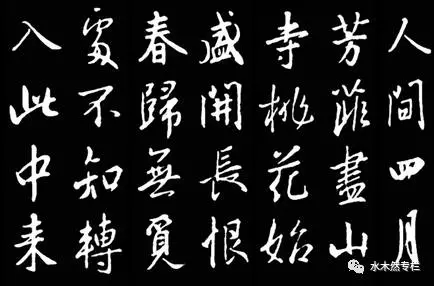 人間四月
芳菲盡山
寺桃花始
盛開長恨
春歸無覓
處不知轉
入此中来
水木然专栏